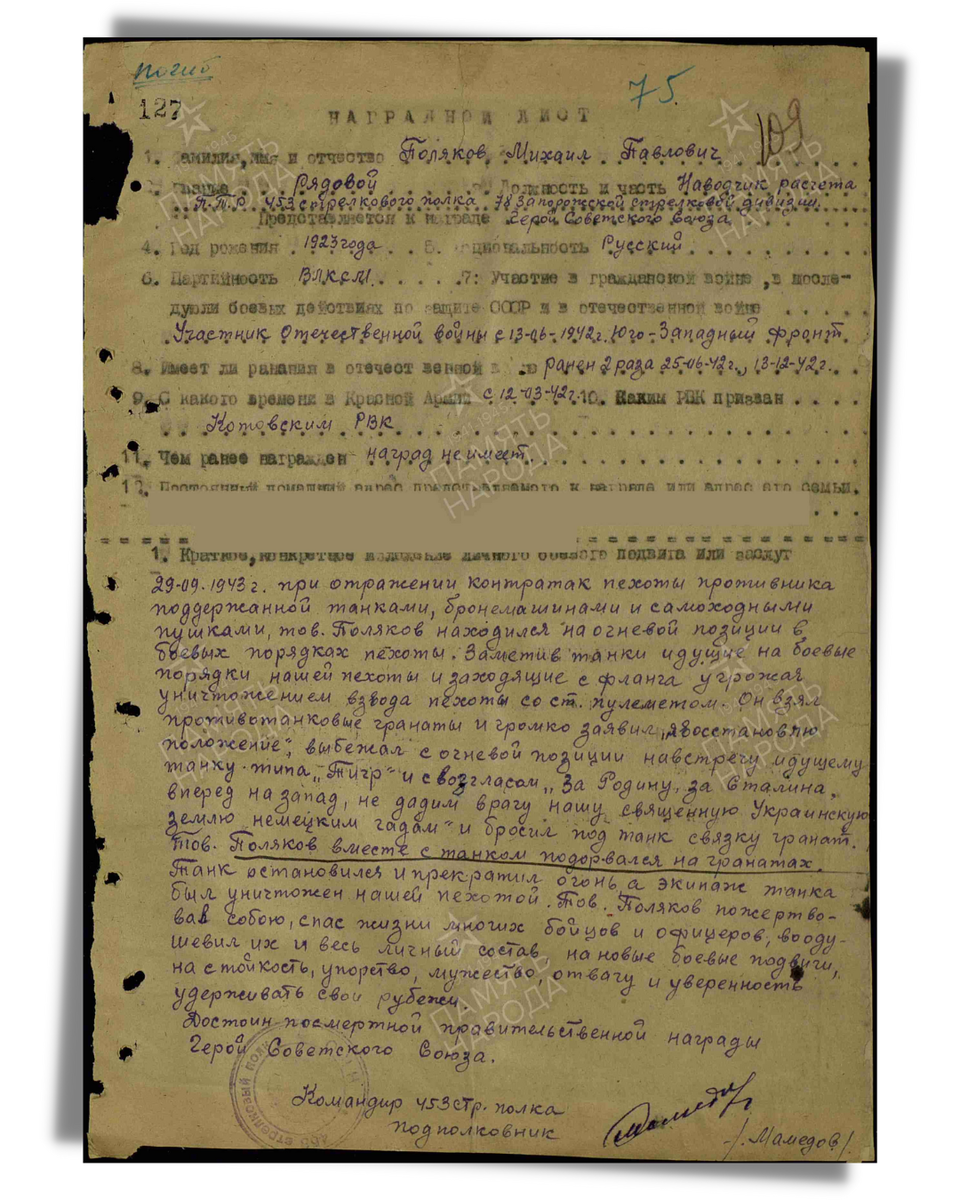 погиб
75.
127
НАГРАДНОЙ ЛИСТ
109
1. Фамилия, имя и отчество Поляков Михаил Павлович
2. Звание Рядовой Должность и часть Наводчик расчета
П.Т.Р 453 стрелкового полка 78 Запорожской стрелковой дивизии
Представляется к награде Герой Советского Союза
4. Год рожения 1923 года 5. Национальность Русский
6. Партийность ВЛКСМ 7: Участие в гражданской войне, в после-
дуюли боевых действиях по защите СССР и в отечественной войне
Участник Отечественной войны с 13-06-1942г. Юго-Западный фронт.
8. Имеет ли ранания в отечест венной ранен 2 раза 25-06-42г., 13-12-42г.
9. С какого времени в Красной Армии с 12-03-42г. 10. Каким РВК призван
Котовским РВК
11. Чем ранее награжден наград не имеет
12. Постоянный домашний адрес представляемого к награде или адрес его семьи.
1. Краткое, конкретное изложение личного боевого подвига или заслуг
29-09.1943г. при отражении контратак пехоты противника
поддержанной танками, бронемашинами и самоходными
пушками, тов. Поляков находился на огневой позиции в
боевых порядках пехоты. Заметив танки идущие на боевые
порядки нашей пехоты и заходящие с фланга угрожая
уничтожением взвода пехоты со ст. пулеметом. Он взял
противотанковые гранаты и громко заявил „Я восстановлю
положение", выбежал с огневой позиции навстречу идущему
танку типа „Тигр" и с возгласом „За Родину, за Сталина,
вперед на запад, не дадим врагу нашу священную Украинскую
землю немецким гадам" и бросил под танк связку гранат.
Тов. Поляков вместе с танком подорвался на гранатах.
Танк остановился и прекратил огонь, а экипаж танка
был уничтожен нашей пехотой. Тов. Поляков пожертво-
вав собою, спас жизни многих бойцов и офицеров, вооду-
шевил их и весь личный состав на новые боевые подвиги,
на стойкость, упорство, мужество, отвагу и уверенность
удерживать свои рубежи.
Достоин посмертной правительственной награды
Герой Советского Союза.
Командир 453 стр. полка
подполковник
/. Мамедов/.
ПАМЯТЬ НАРОДА